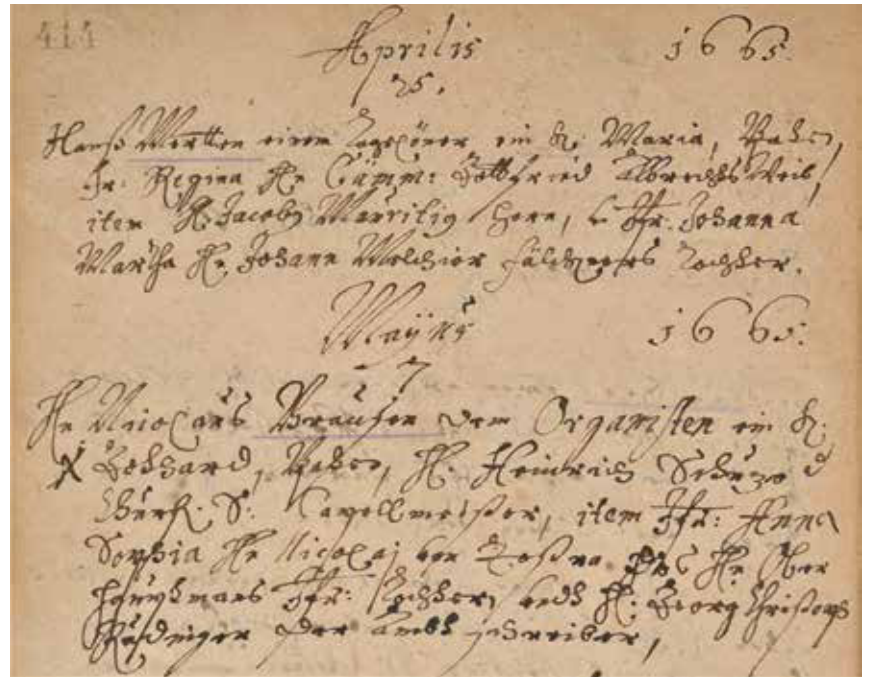 414
Aprilis 1665.
25.
Hanß Mertten einem Tagelöner ein K: Maria, Pathen,
Fr: Regina Hr Cämm: Gottfried Albrechts Weib,
item H. Jacobg Mauritig Horn, Jfr. Johanna
Martha Hr. Johann Melchior Tochter.
Maijus 1665.
7
Hr Nicolaus dem Organisten ein K:
Gebhard, Pathen, H. Heinrich Schüze d
Churf. S. Capellmeister, item Jfr: Anna
Sophia Hr Nicolaj von des Hr Ober
Hauptmans Jfr: Tochter, undt H. Georg Christoph
der Ambt schreiber,